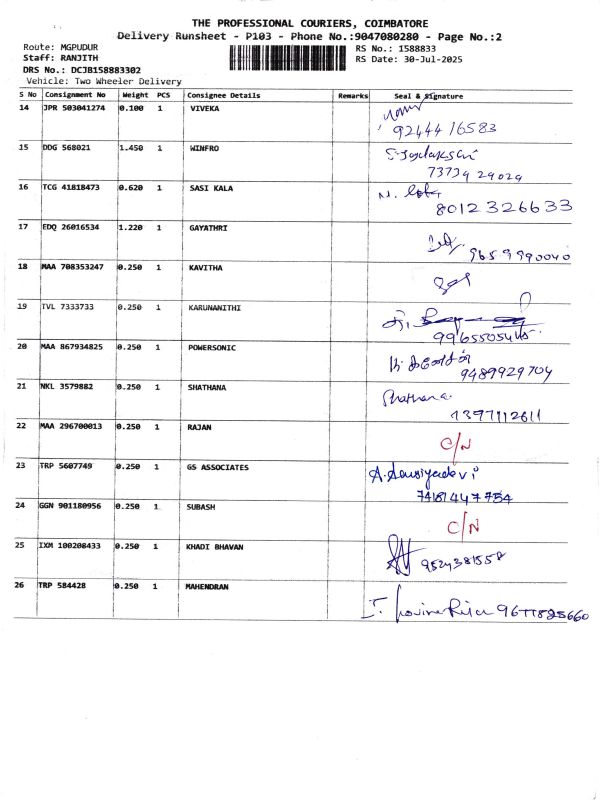 THE PROFESSIONAL COURIERS, COIMBATORE
Delivery Runsheet - P103 - Phone No.:9047080280 - Page No.:2
Route: MGPUDUR
Staff: RANJITH
DRS No.: DCJB158883302
Vehicle: Two Wheeler Delivery
RS No.: 1588833
RS Date: 30-Jul-2025
S No Consignment No Weight PCS Consignee Details Remarks Seal & Signature
14 JPR 503041274 0.100 1 VIVEKA
9244416583
15 DDG 568021 1.450 1 WINFRO
73739 29029
16 TCG 41818473 0.620 1 SASI KALA
8012326633
17 EDQ 26016534 1.220 1 GAYATHRI
9659990040
18 MAA 708353247 0.250 1 KAVITHA
19 TVL 7333733 0.250 1 KARUNANITHI
20 MAA 867934825 0.250 1 POWERSONIC
9489929704
21 NKL 3579882 0.250 1 SHATHANA
Shathana
7397112611
22 MAA 296700013 0.250 1 RAJAN
C/N
23 TRP 5607749 0.250 1 GS ASSOCIATES
7418147754
24 GGN 901180956 0.250 1 SUBASH
C/N
25 IXM 100208433 0.250 1 KHADI BHAVAN
9524381558
26 TRP 584428 0.250 1 MAHENDRAN
9677825660